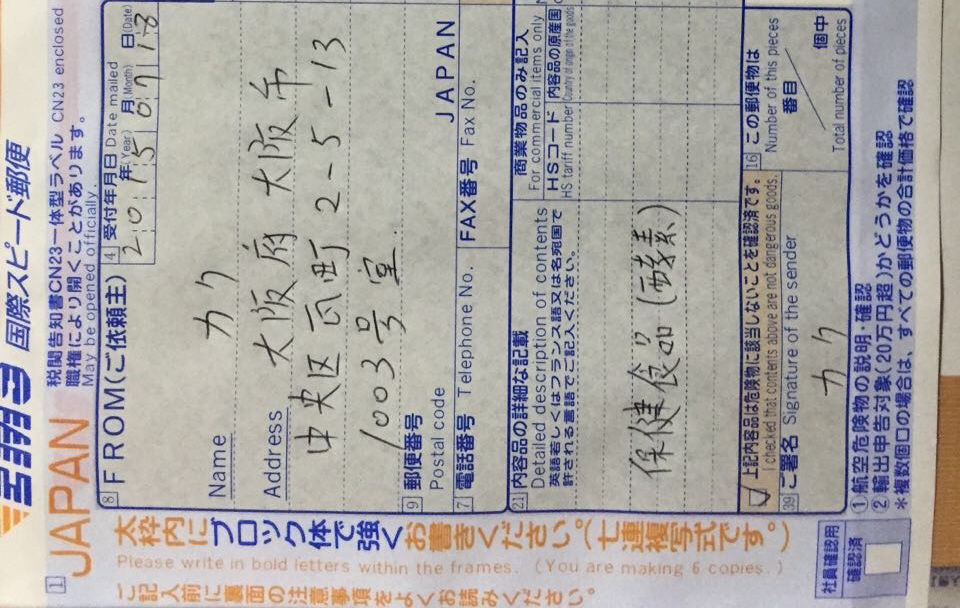 EMS 国際スピード郵便
JAPAN
税関告知書CN23一体型ラベル CN23 enclosed
職権により開くことがあります。
May be opened officially.
1
大枠内にブロック体で強くお書きください。(七連複写式です。)
Please write in bold letters within the frames. (You are making 6 copies.)
ご記入前に裏面の注意事項をよくお読みください。
8 FROM(ご依頼主)
4 受付年月日 Date mailed
年(Year) 月(Month) 日(Date)
2015 07 18
Name カク
Address 大阪府 大阪市
中央区 瓦町 2-5-13
1003号室
9 郵便番号
Postal code
JAPAN
7 電話番号 Telephone No.
FAX番号 Fax No.
21 内容品の詳細な記載
Detailed description of contents
英語若しくはフランス語又は名宛国で
許される言語でご記入ください。
商業物品のみ記入
For commercial items only
HSコード
HS tariff number
内容品の原産国
Country of origin of the goods
保健食品(酵素)
上記内容品は危険物に該当しないことを確認済です。
I checked that contents above are not dangerous goods.
39 ご署名 Signature of the sender
カク
16 この郵便物は
Number of this pieces
番目
個中
Total number of pieces
社員確認用
確認済
① 航空危険物の説明・確認
② 輸出申告対象(20万円超)かどうかを確認
*複数個口の場合は、すべての郵便物の合計価格で確認